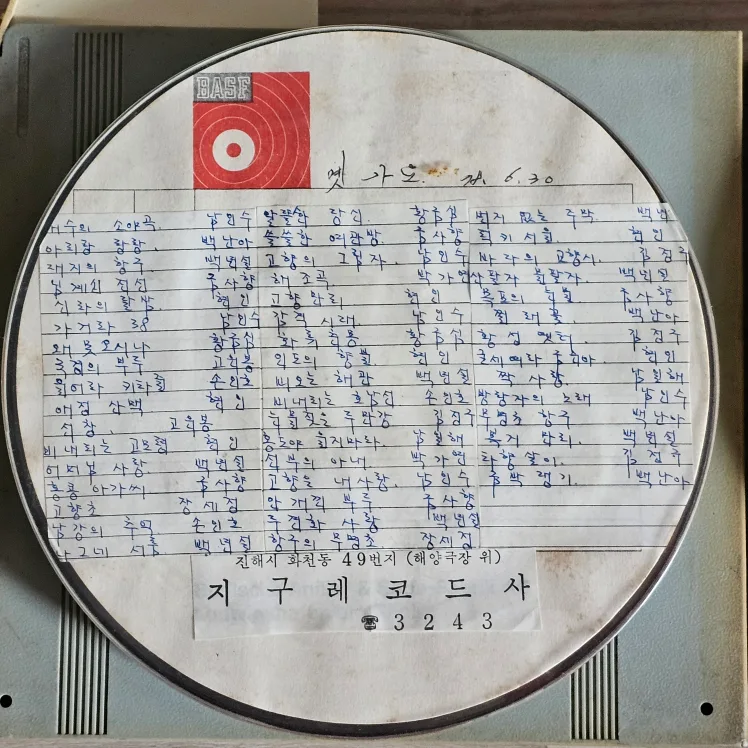 BASF
옛 가요. 74. 6. 30
애수의 소야곡. 남인수
아리랑 랑랑. 백난아
대지의 항구. 백년설
님 계신 전선 금사향
신라의 달밤 현인
가거라 38 남인수
왜 못오시나 황금심
고회봉
울어라 키타줄 손인호
애정 산맥 현인
고회봉
비내리는 고모령 현인
어머님 사랑 백년설
홍콩 아가씨 금사향
고향초 장세정
남강의 추억 손인호
나그네 서름 백년설
알뜰한 당신. 황금심
쓸쓸한 여관방. 금사향
고향의 그림자. 남인수
해조곡 박가연
고향만리 현인
감격시대. 남인수
황금심
인도의 향불 현인
비오는 해관 백년설
비내리는 호남선 손인호
눈물젖은 두만강 김정구
홍도야 우지마라 남일해
박가연
고향은 내사랑. 남인수
안개낀 부두 금사향
두견화 사랑 백년설
항구의 무명초 장세정
번지 없는 주막 백년
럭키서울 현인
바다의 교향시. 김정구
사랑자 불탈자. 백년설
목포의 눈물 금사향
찔레꽃. 백난아
황성옛터. 김정구
굳세어라 금순아. 현인
짝사랑. 남일해
방랑자의 노래 남인수
무명초 항구 백난아
복지 만리. 백년설
타향살이. 김정구
금박댕기. 백난아
진해시 화천동 49번지 (해양극장 위)
지구레코드사
☎ 3243